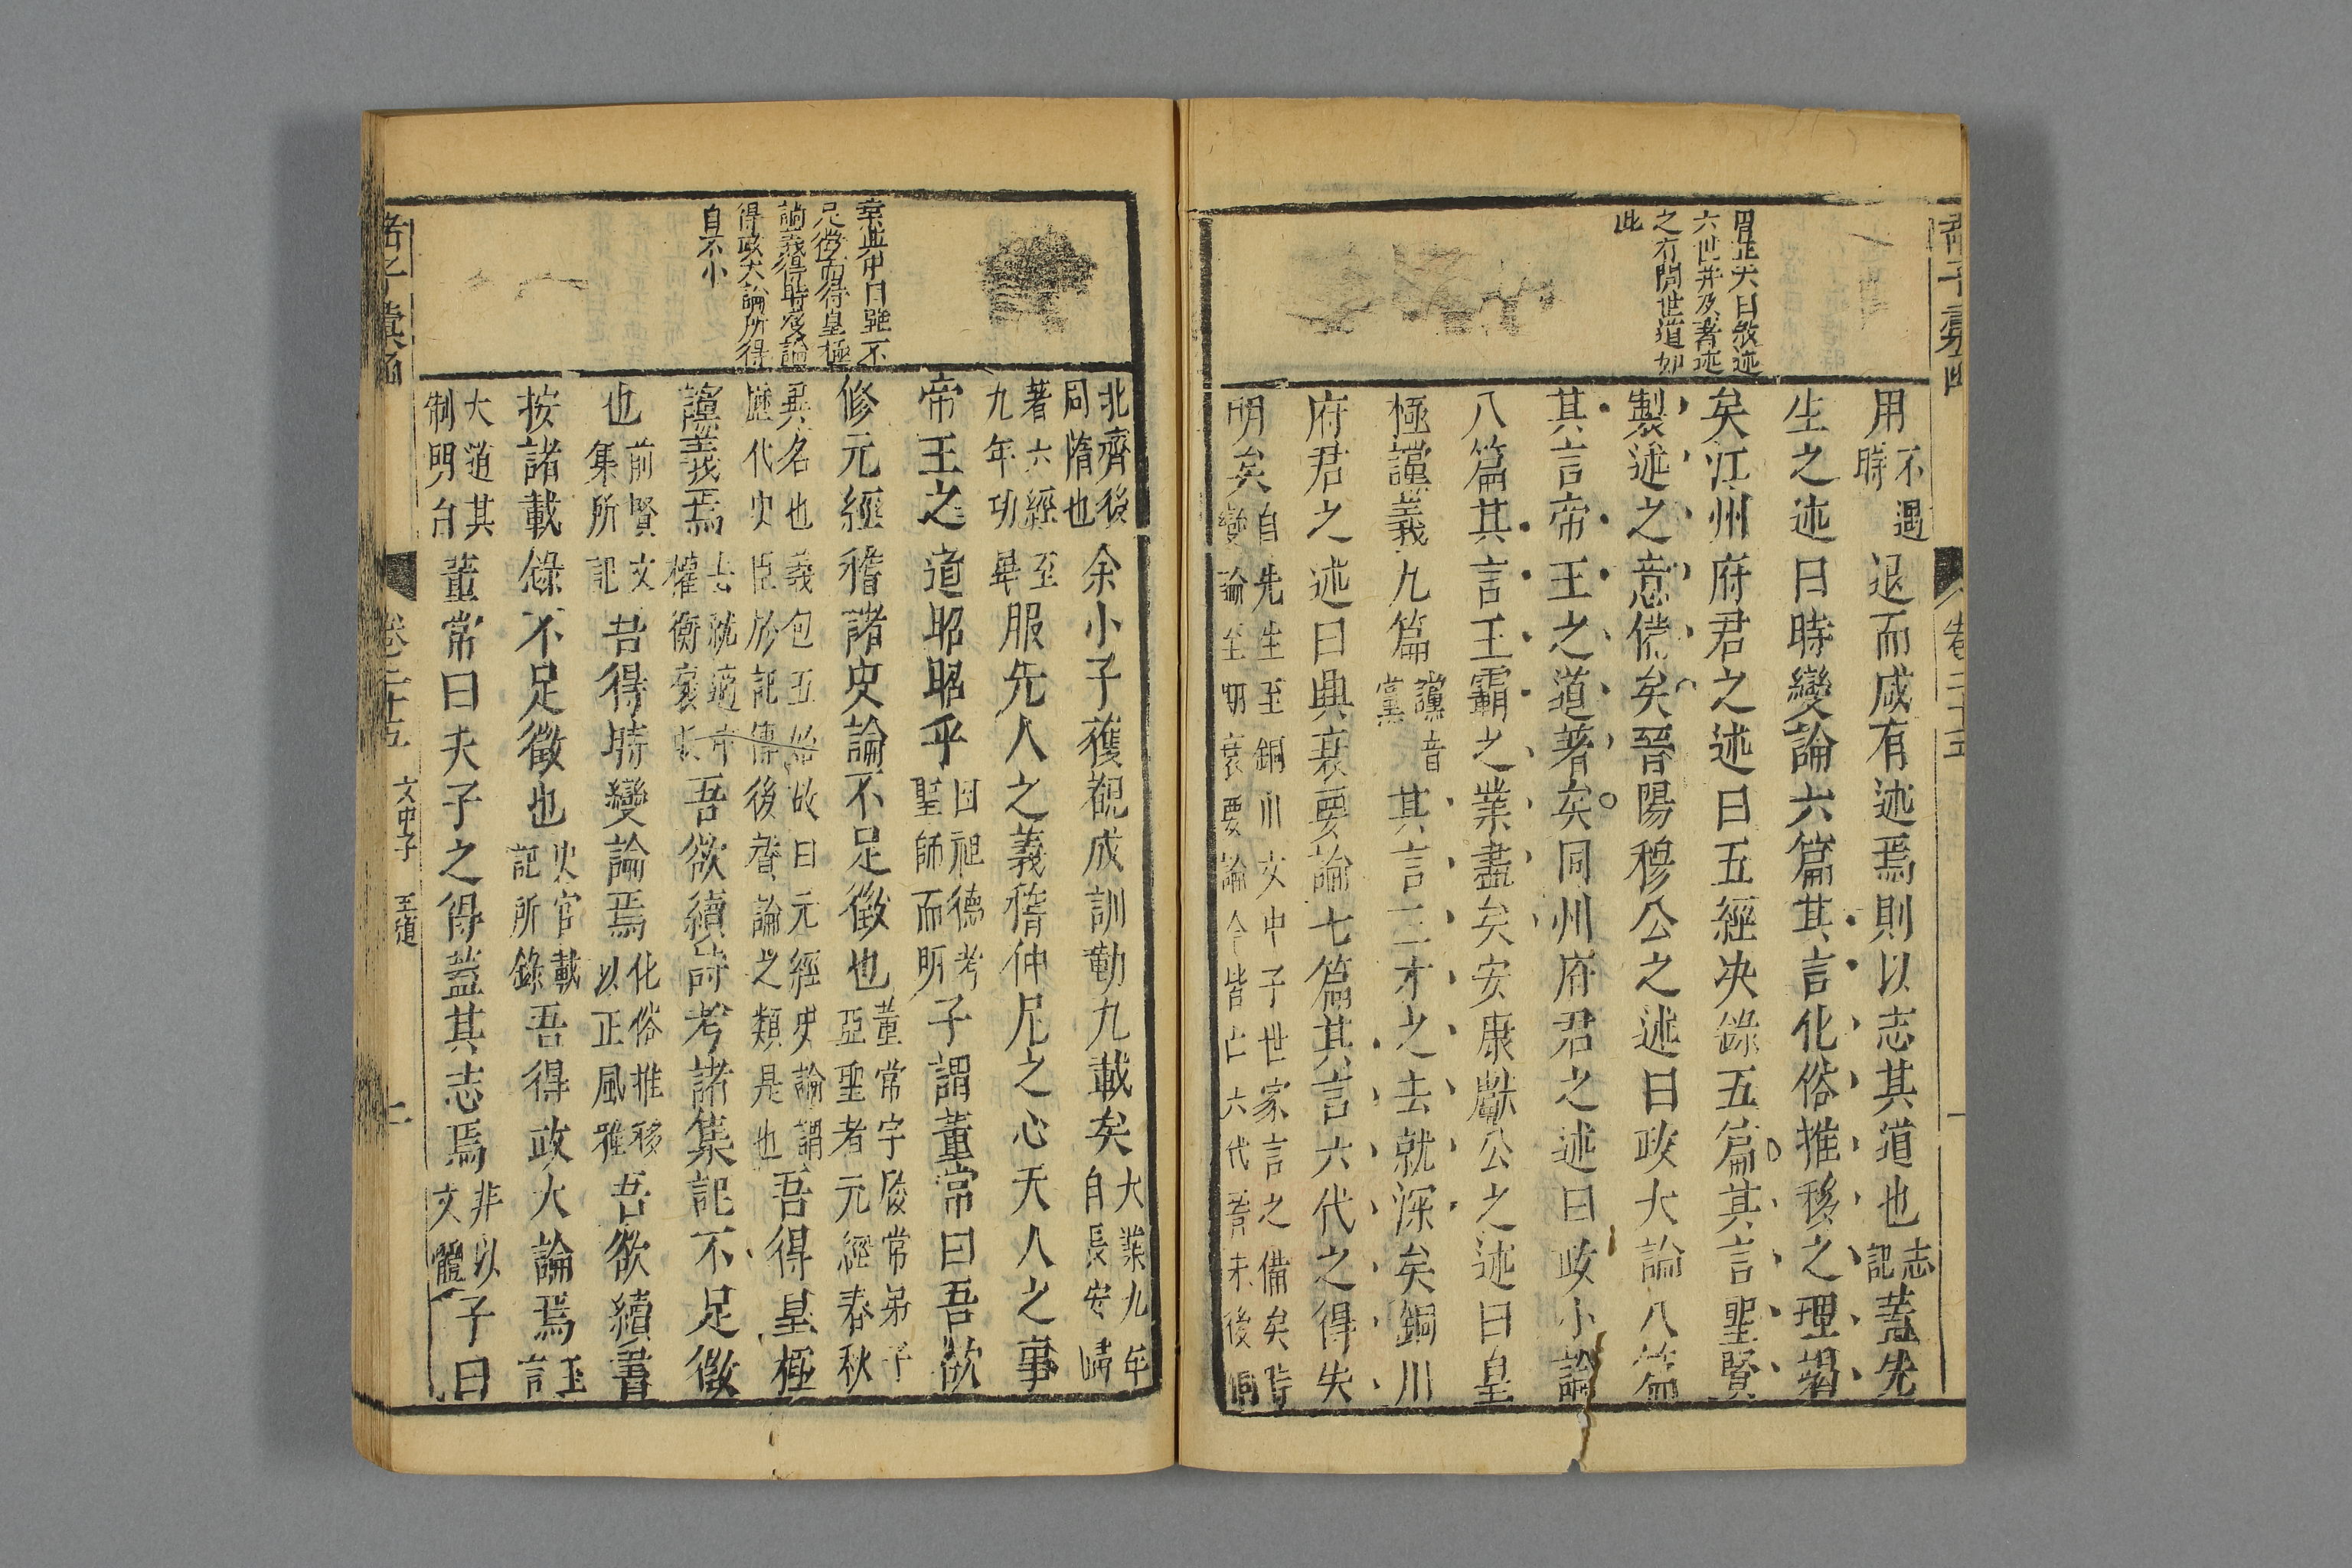 卷二十五
用不遇時退而咸有述焉則以志其道也志記蓋先
生之述曰時變論六篇其言化俗推移之理竭
矣江州府君之述曰五經决錄五篇其言聖賢
製述之意備矣晉陽穆公之述曰政大論八篇
其言帝王之道著矣同州府君之述曰政小論
八篇其言王霸之業盡矣安康獻公之述曰皇
極讜義九篇讜音黨其言三才之去就深矣銅川
府君之述曰興衰要論七篇其言六代之得失
明矣自先生至銅川文中子世家言之備矣時變論至興衰要論今皆亡六代晉宋後
六世并及著述
之有關世道如
此
北齊後同隋也余小子獲覩成訓勤九載矣大業九年自長安歸
著六經至九年功畢服先人之義稽仲尼之心天人之事
帝王之道昭昭乎因祖德考聖師而明子謂董常曰吾欲
修元經稽諸史論不足徵也董常字履常弟子亞聖者元經春秋
異名也義包五始故曰元經史論謂歷代史臣於記傳後贊論之類是也吾得皇極
讜義焉去就適中權衡襃貶吾欲續詩考諸集記不足徵
也前賢文集所記吾得時變論焉化俗推移以正風雅吾欲續書
按諸載錄不足徵也史官載記所錄吾得政大論焉王言
大道其制明白董常曰夫子之得蓋其志焉非以文體子曰
足徵而得皇極
讜義得時變論
得政大論所得
自不小
卷二十五
文中子
王道